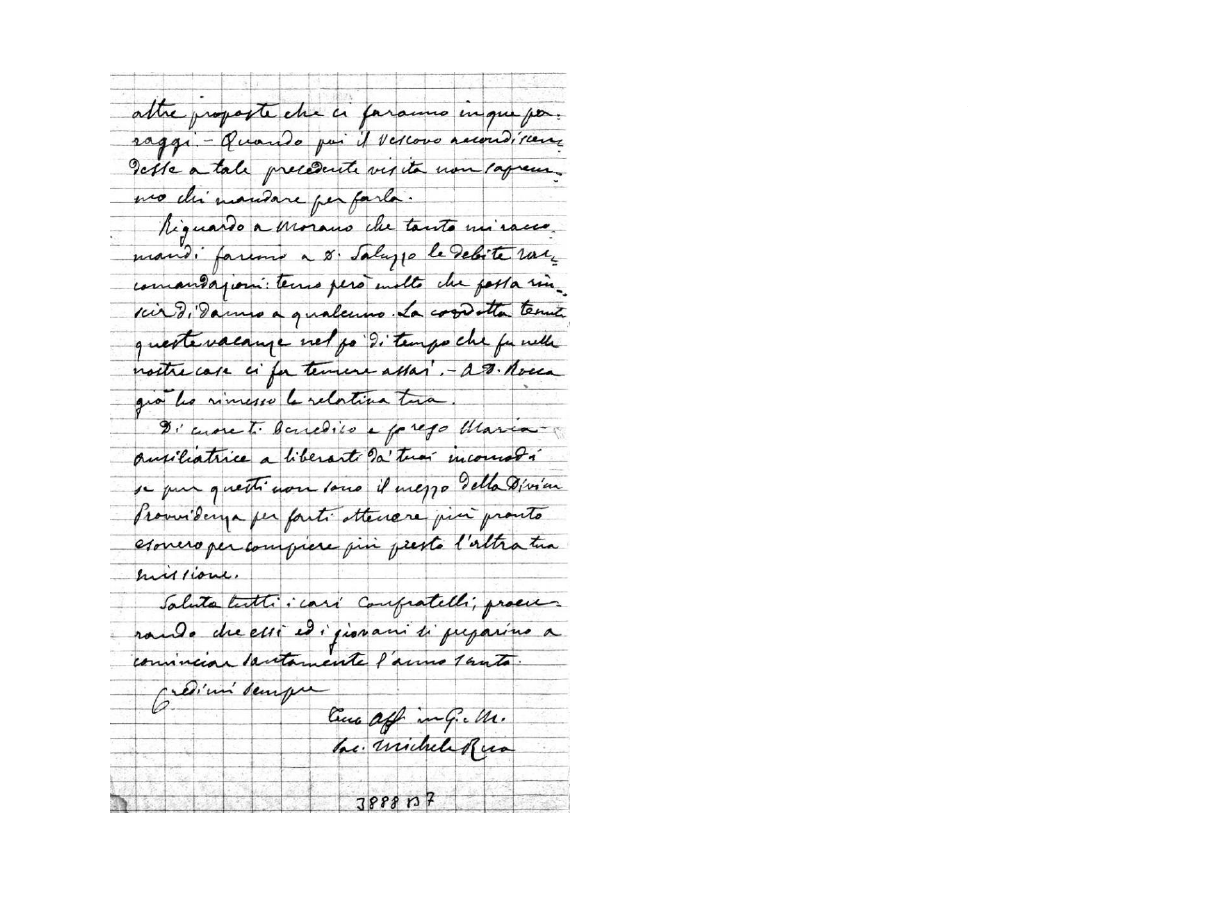 altre proposte che ci faranno in que pa-
raggi - Quando poi il Vescovo accondiscen-
desse a tale precedente visita non saprem-
mo chi mandare per farla.
Riguardo a Morano che tanto mi racco-
mandi faremo a D. Saluzzo le debite rac-
comandazioni: temo però molto che possa riu-
scir di danno a qualcuno. La condotta tenuta
queste vacanze nel po' di tempo che fu nelle
nostre case ci fa temere assai. - A D. Rocca
già ho rimesso la relativa tua.
Di cuore ti benedico e prego Maria
Ausiliatrice a liberarti da' tuoi incomodi
se pur questi non sono il mezzo della Divina
Provvidenza per farti ottenere più pronto
esonero per compiere più presto l'altra tua
missione.
Saluta tutti i cari Confratelli, procu-
rando che essi ed i giovani si preparino a
cominciar santamente l'anno santo.
Credimi sempre
Tuo Aff. in G. e M.
Sac. Michele Rua
3888 B7